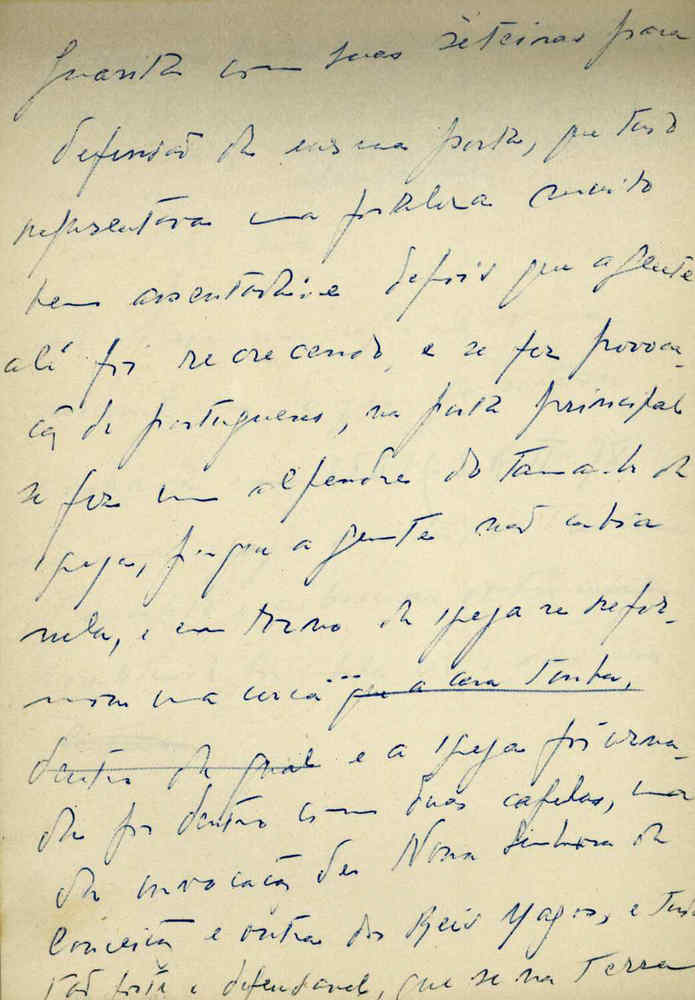 Guarita com suas seteiras para
defensaõ da mesma porta, que tudo
representava uma fortaleza muito
bem assentada: e depois que a gente
ali foi recrecendo, e se fez povoa-
çaõ de portugueses, na porta principal
se fez um alpendre do tamanho da
igreja, porque a gente naõ cabia
nela, e em torno da igreja se refor-
mou uma cerca... que a cerca tinha,
dentro da qual e a igreja foi orna-
da por dentro com duas capelas, uma
da invocaçaõ de Nossa Senhora da
Conceiçaõ e outra dos Reis Magos, e tudo
taõ forte e defensavel, que se na terra